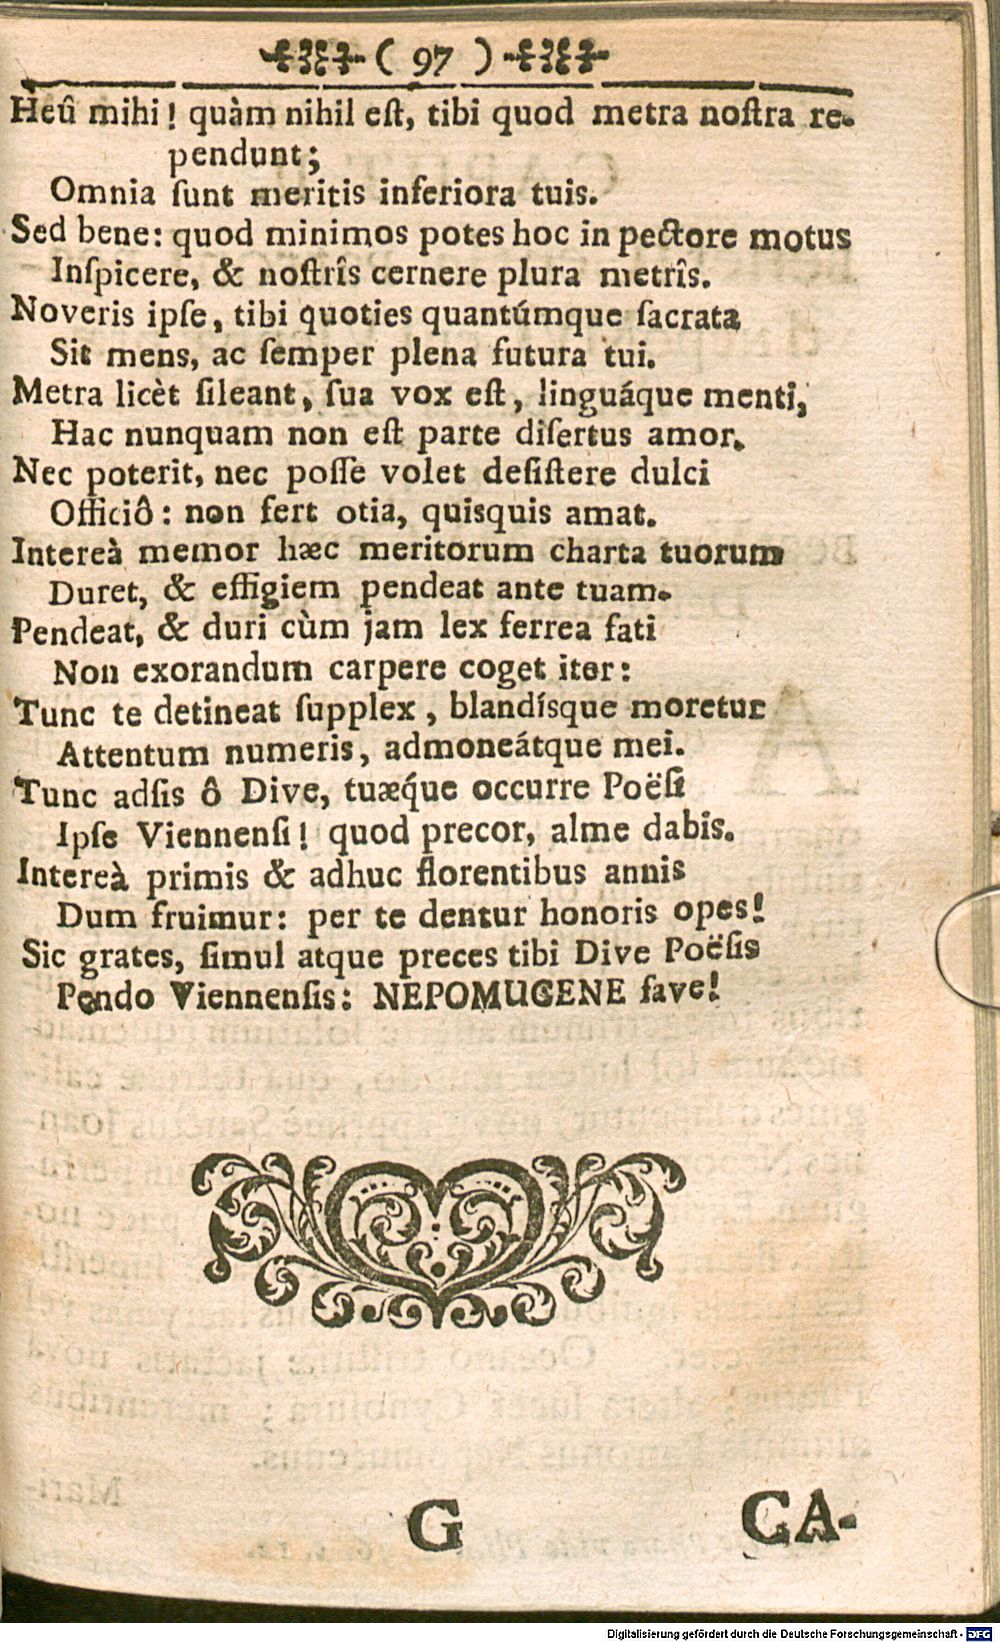 ( 97 )
Heû mihi! quàm nihil eſt, tibi quod metra noſtra re-
pendunt;
Omnia ſunt meritis inferiora tuis.
Sed bene: quod minimos potes hoc in pectore motus
Inſpicere, & noſtrîs cernere plura metrîs.
Noveris ipſe, tibi quoties quantúmque ſacrata
Sit mens, ac ſemper plena futura tui.
Metra licèt ſileant, ſua vox eſt, linguáque menti,
Hac nunquam non eſt parte diſertus amor.
Nec poterit, nec poſſe volet deſiſtere dulci
Officiô: non fert otia, quisquis amat.
Intereà memor hæc meritorum charta tuorum
Duret, & effigiem pendeat ante tuam.
Pendeat, & duri cùm jam lex ferrea fati
Non exorandum carpere coget iter:
Tunc te detineat ſupplex, blandísque moretur
Attentum numeris, admoneátque mei.
Tunc adſis ô Dive, tuæq́ue occurre Poëſi
Ipſe Viennenſi! quod precor, alme dabis.
Intereà primis & adhuc florentibus annis
Dum fruimur: per te dentur honoris opes!
Sic grates, ſimul atque preces tibi Dive Poëſis
Pendo Viennenſis: NEPOMUCENE fave!
G CA-
Digitalisierung gefördert durch die Deutsche Forschungsgemeinschaft - DFG